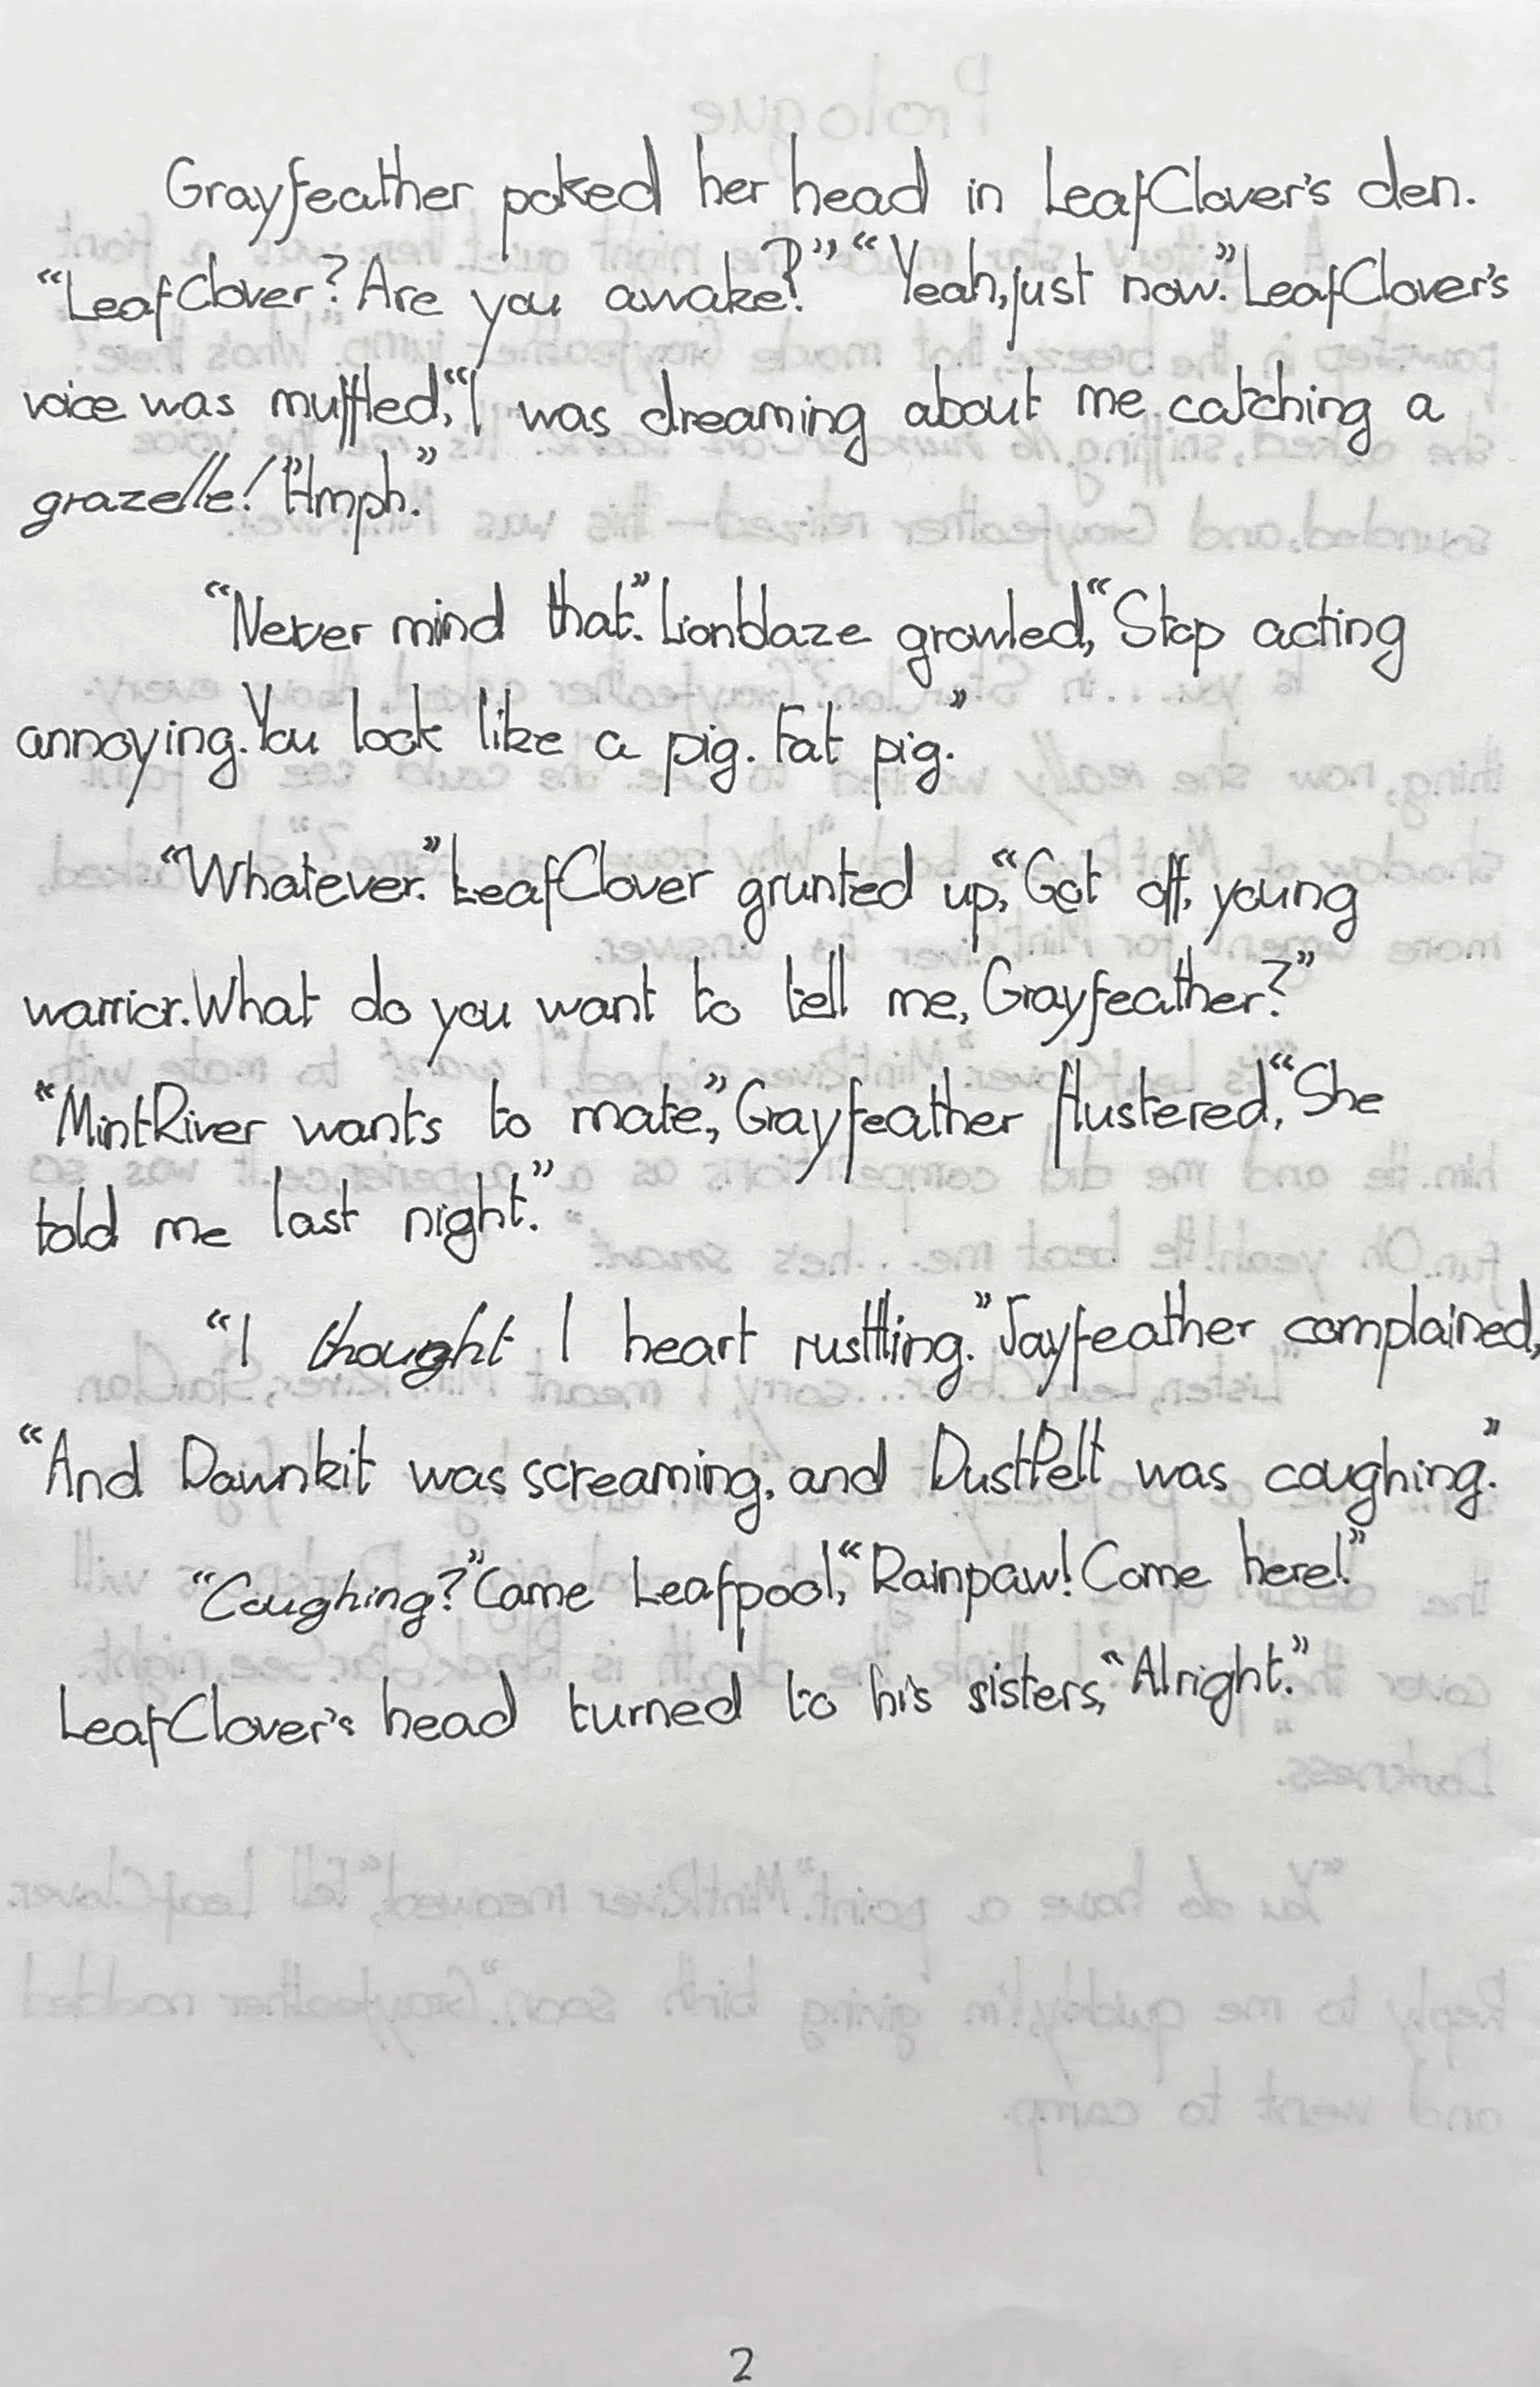 Grayfeather poked her head in LeafClover's den.
“LeafClover? Are you awake?” “Yeah, just now.” LeafClover's
voice was muffled, “I was dreaming about me catching a
grazelle!” “Hmph.”
“Never mind that.” Lionblaze growled, “Stop acting
annoying. You look like a pig. Fat pig.”
“Whatever.” LeafClover grunted up, “Get off, young
warrior. What do you want to tell me, Grayfeather?”
“MintRiver wants to mate,” Grayfeather flustered, “She
told me last night.”
“I thought I heart rusttling.” Jayfeather complained,
“And Dawnkit was screaming, and DustPelt was coughing.”
“Coughing?” Came Leafpool, “Rainpaw! Come here!”
LeafClover's head turned to his sisters, “Alright.”
2